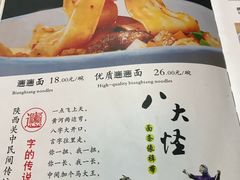 𰻞𰻞面 18.00元/碗
Biangbiang noodles
优质𰻞𰻞面 26.00元/碗
High-quality biangbiang noodles
陕西关中民间传
字的传说
一点飞上天，
黄河两边弯，
八字大开口，
言字往里走，
你一扭，我一扭，
你一长，我一长，
中间加个马大王，
八大怪
面条像裤带